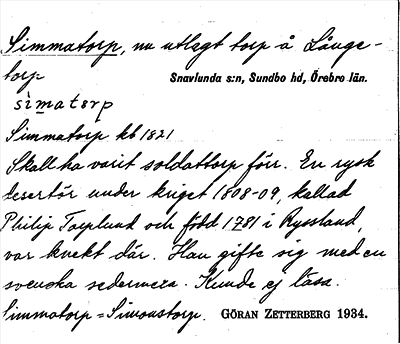 Simmatorp, nu utlagt torp å Långe-
torp
Snavlunda s:n, Sundbo hd, Örebro län.
simatorp
Simmatorp kb 1821
Skall ha varit soldattorp förr. En rysk
desertör under kriget 1808-09, kallad
Philip Torplund och född 1781 i Ryssland,
var knekt där. Han gifte sig med en
svenska sedermera. Kunde ej läsa.
Simmatorp = Simonstorp. GÖRAN ZETTERBERG 1934.